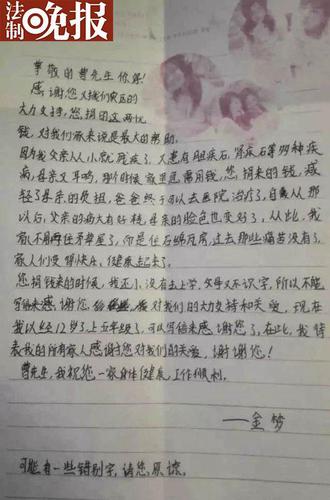 法制晚报
尊敬的曹先生你好！
感谢您对我们家的
大力支持，您捐的这两比
钱，对我们家来说是最大的帮助。
因为父亲从小就残疾了，又患有胆床石，肾床石等两种疾
病，母亲又耳鸣，那时候家里急需用钱，您捐来的钱，减
轻了母亲的负担，爸爸终于可以去医院治疗了，自从那
以后，父亲的病大有好转，母亲的脸色也变好了，从此，我
家不用再住茅草屋了，而是住石绵瓦房，过去那些痛苦没有了，
家人们变得快乐、健康起来了。
您捐钱来的时候，我还小，没有去上学，父母又不识字，所以不能
写信来感谢您，对我们的大力支持和关爱，现在
我以经12岁了，上五年级了，可以写信来感谢您了，在此，我代
表我的所有家人感谢您对我们的关爱，谢谢您！
曹先生，我祝您一家身体健康，工作顺利。
——金梦
可能有一些错别字，请您原谅。